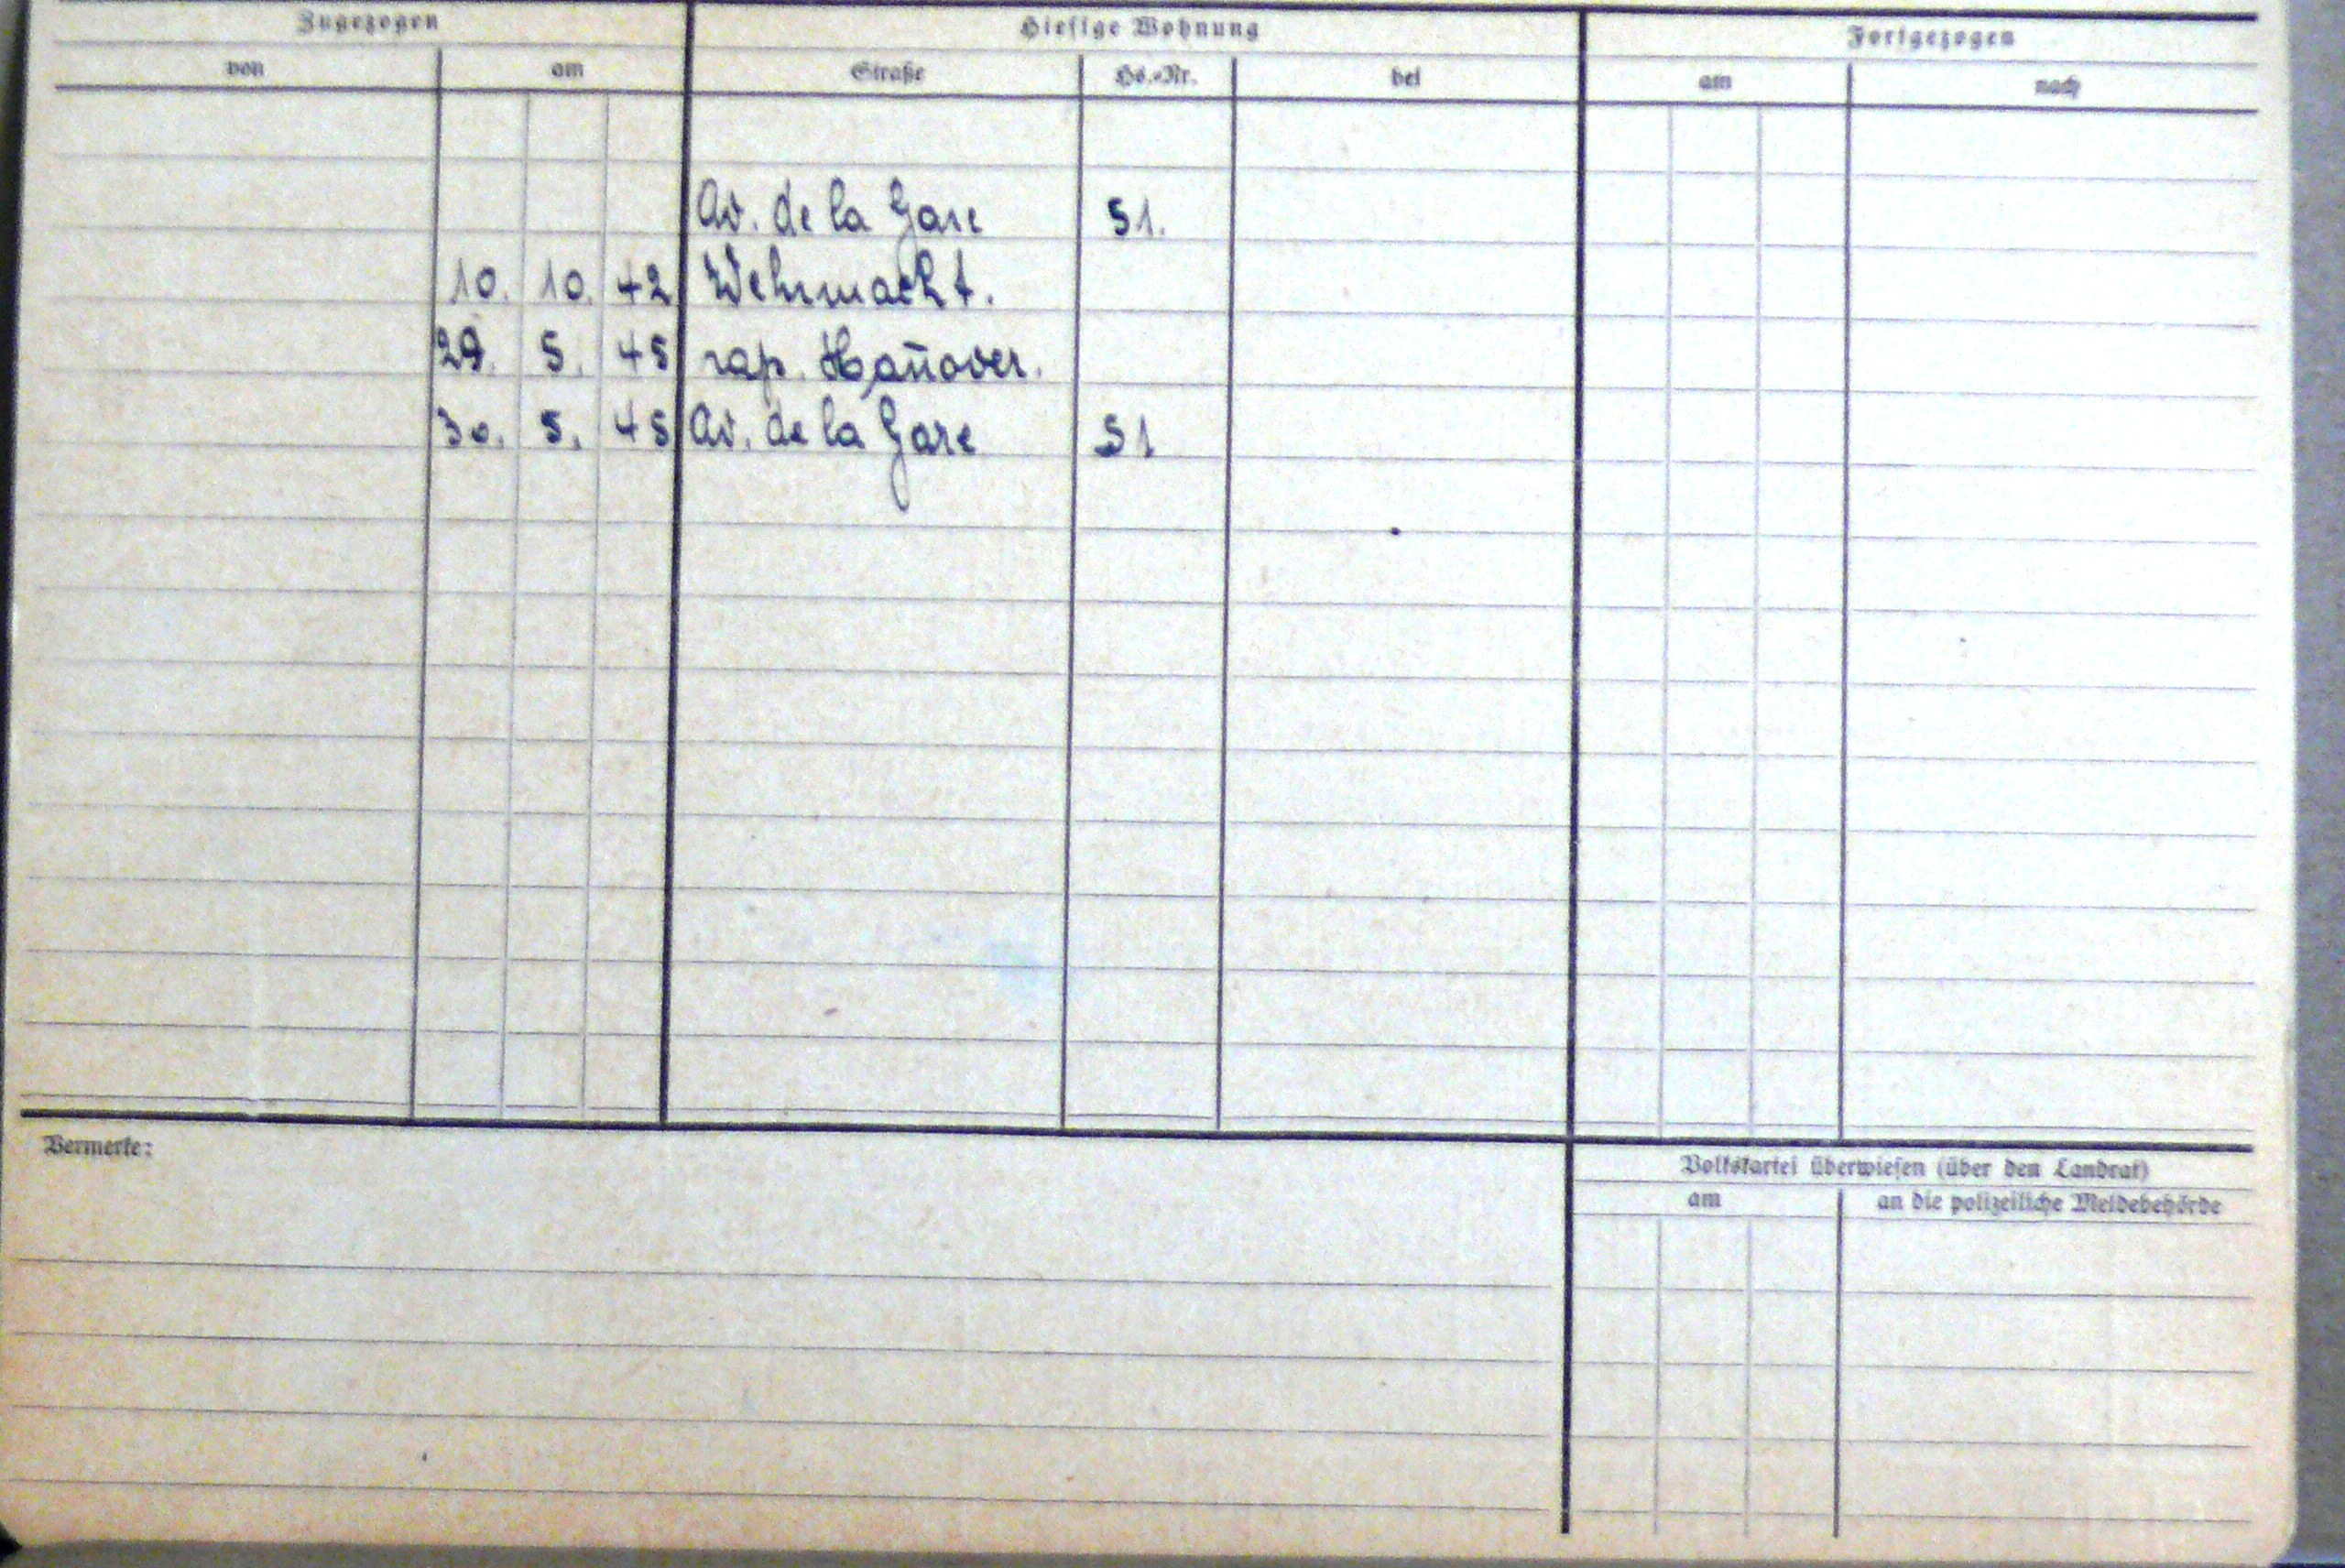 Zugezogen Hiesige Wohnung Fortgezogen
von am Straße Hs.-Nr. bei am nach
Av. de la Gare 51.
10. 10. 42 Wehrmacht.
29. 5. 45 rap. Hañover.
30. 5. 45 Av. de la Gare 51
Vermerke:
Volkskartei überwiesen (über den Landrat)
am an die polizeiliche Meldebehörde